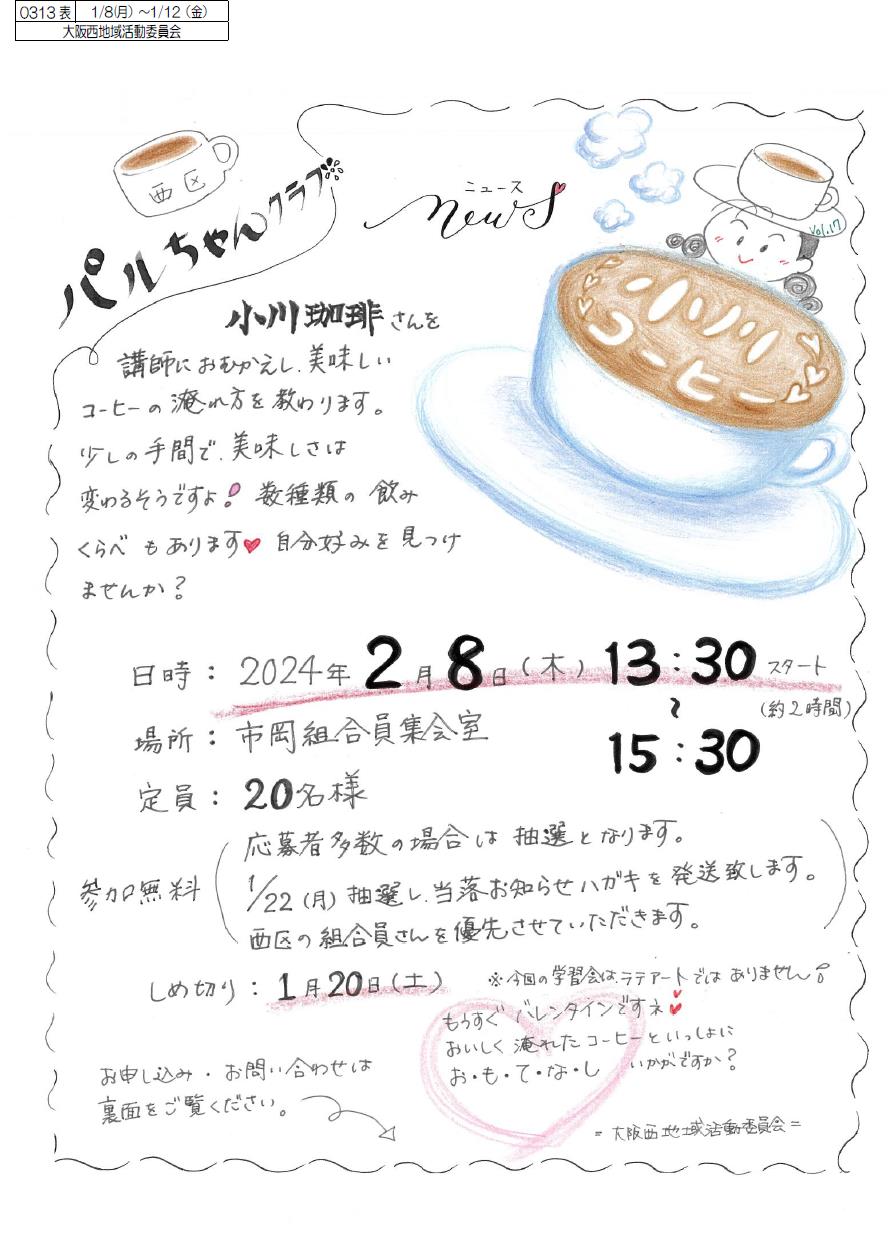 0313 表 1/8(月) ～1/12 (金)
大阪西地域活動委員会
西区
パルちゃんクラブ
ニュース
news
Vol.17
小川
コーヒー
小川珈琲さんを
講師におむかえし、美味しい
コーヒーの淹れ方を教わります。
少しの手間で、美味しさは
変わるそうですよ! 数種類の飲み
くらべもあります♥ 自分好みを見つけ
ませんか?
日時: 2024年2月8日(木) 13:30 スタート
～ (約2時間)
15:30
場所: 市岡組合員集会室
定員: 20名様
参加無料
応募者多数の場合は抽選となります。
1/22(月)抽選し、当落お知らせハガキを発送致します。
西区の組合員さんを優先させていただきます。
しめ切り: 1月20日(土)
※今回の学習会は、ラテアートではありません。
もうすぐバレンタインですネ♥
おいしく淹れたコーヒーといっしょに
お・も・て・な・し いかがですか?
お申し込み・お問い合わせは
裏面をご覧ください。
=大阪西地域活動委員会=